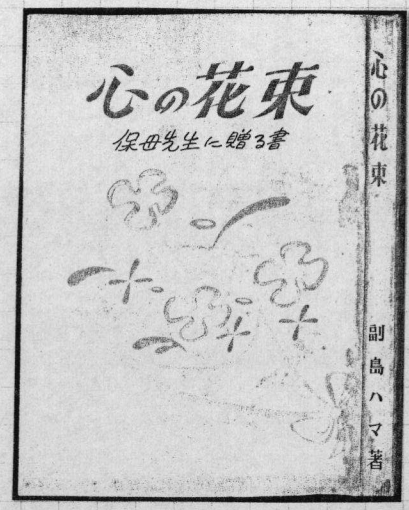 心の花束
保母先生に贈る書
心の花束
副島ハマ著